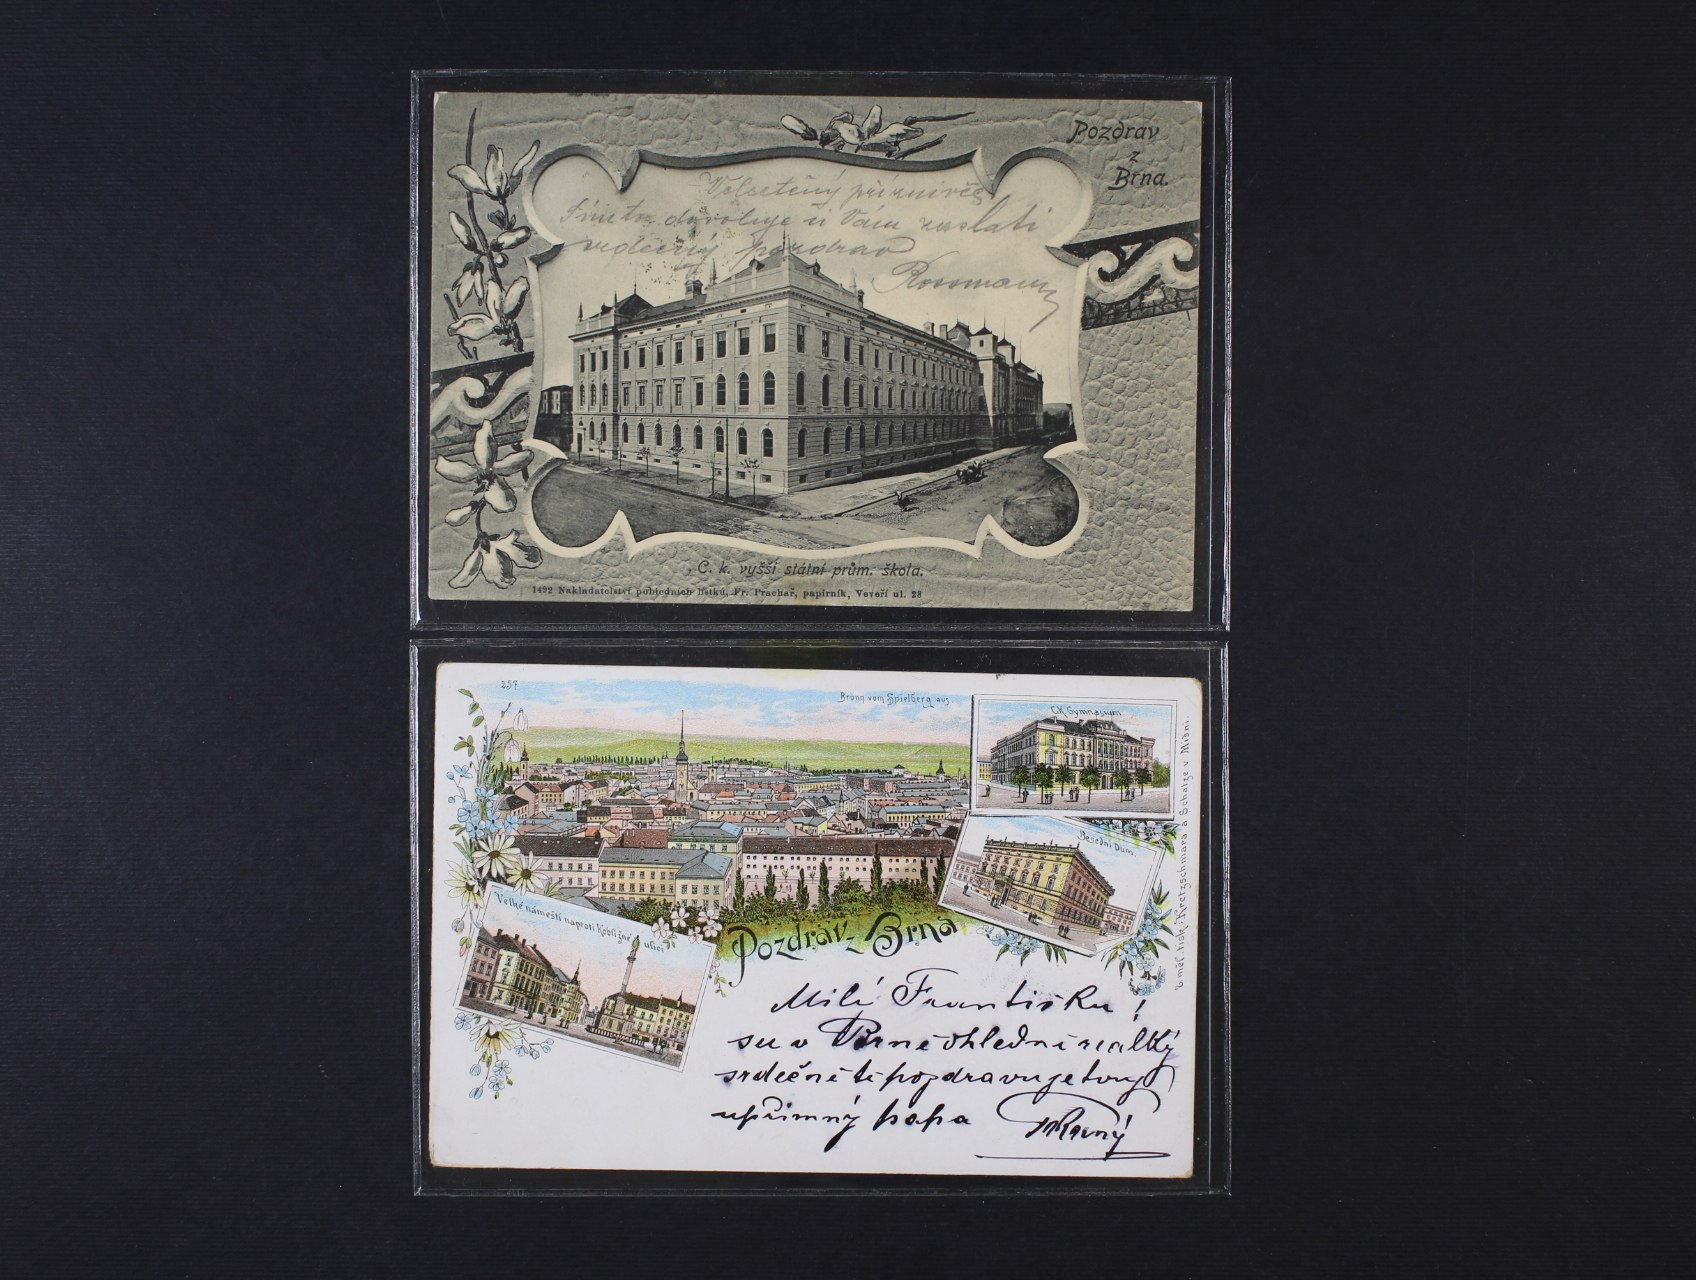 Pozdrav
z
Brna.
Velectěný příznivče
Tímto dovoluje si Vám zaslati
srdečný pozdrav
Rossmann
C. k. vyšší státní prům. škola.
1492 Nakladatelství pohledních lístků, Fr. Prachař, papírník, Veveří ul. 28
257
Brünn vom Spielberg aus.
C.K. Gymnasium.
Besední Dům.
Velké náměstí naproti Kobližné ulici
Pozdrav z Brna
Milý Františku!
su v Brně ohlední
srdečně tě pozdravuje tvůj
upřímný papa
Uměl. tisk: Kretzschmara a Schatze v Míšni.